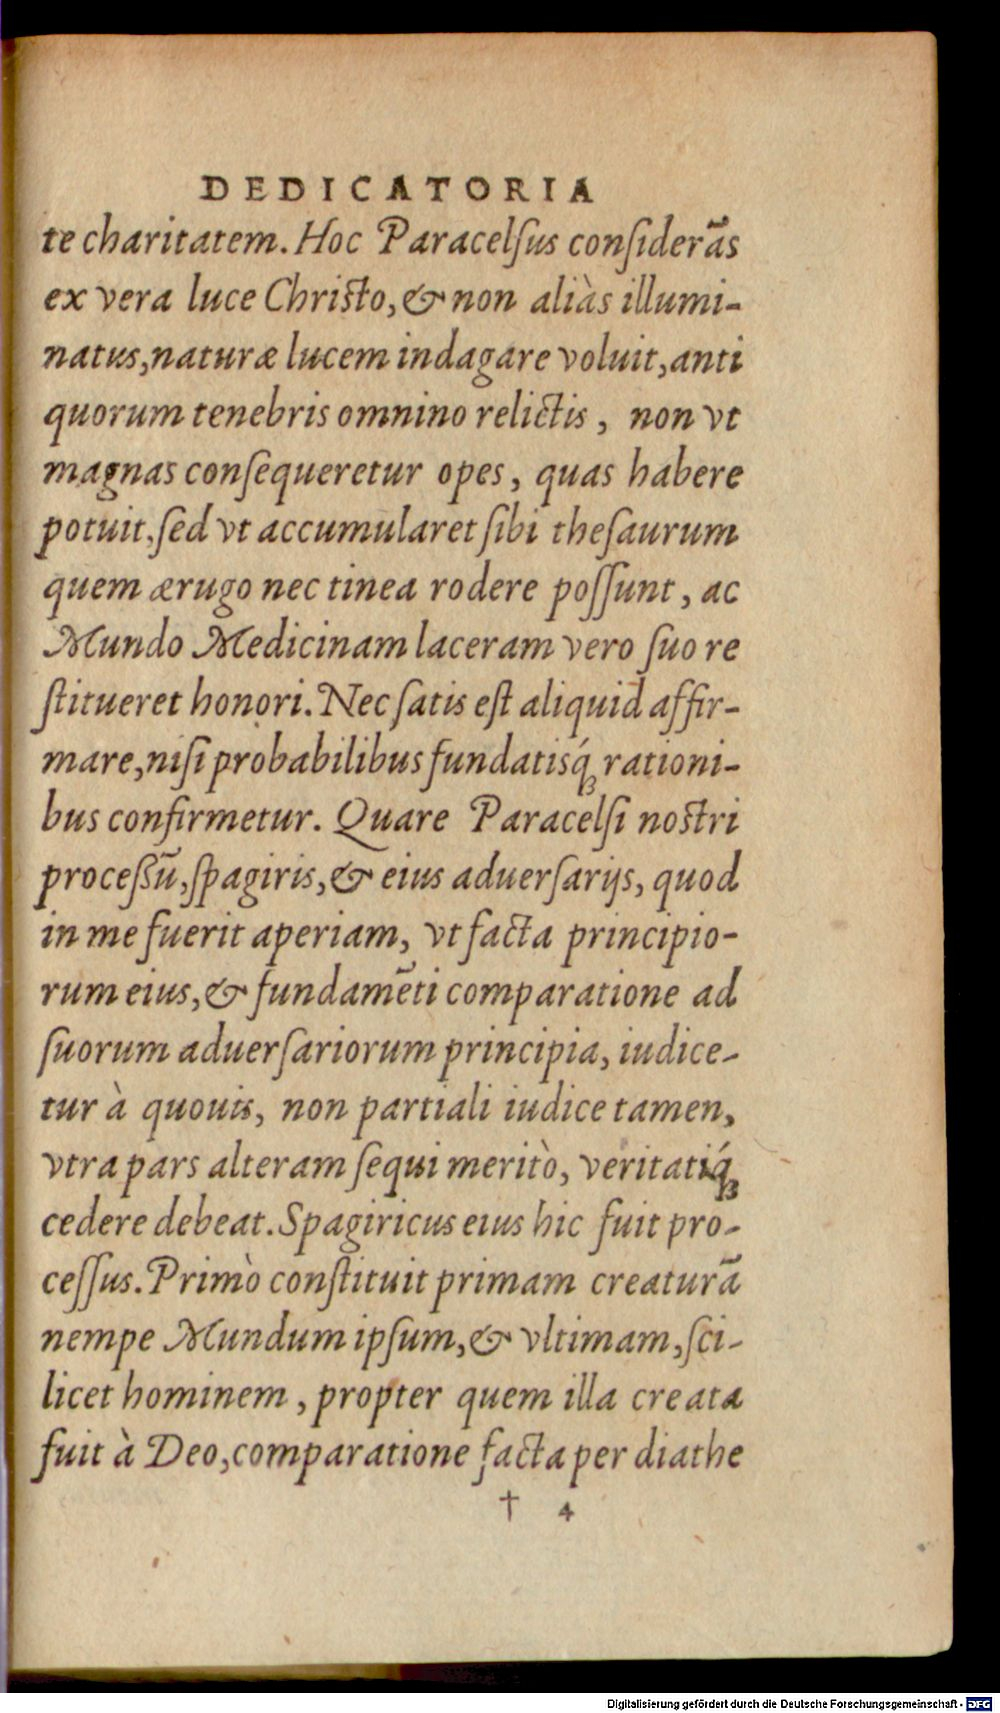 DEDICATORIA
te charitatem. Hoc Paracelſus conſiderãs
ex vera luce Chriſto, & non aliàs illumi-
natus, naturæ lucem indagare voluit, anti
quorum tenebris omnino relictis, non vt
magnas conſequeretur opes, quas habere
potuit, ſed vt accumularet ſibi theſaurum
quem ærugo nec tinea rodere poſſunt, ac
Mundo Medicinam laceram vero ſuo re
ſtitueret honori. Nec ſatis eſt aliquid affir-
mare, niſi probabilibus fundatisq́; rationi-
bus confirmetur. Quare Paracelſi noſtri
proceſſũ, ſpagiris, & eius aduerſarijs, quod
in me fuerit aperiam, vt facta principio-
rum eius, & fundamẽti comparatione ad
ſuorum aduerſariorum principia, iudice-
tur à quouis, non partiali iudice tamen,
vtra pars alteram ſequi meritò, veritatiq́;
cedere debeat. Spagiricus eius hic fuit pro-
ceſſus. Primò conſtituit primam creaturã
nempe Mundum ipſum, & vltimam, ſci-
licet hominem, propter quem illa creata
fuit à Deo, comparatione facta per diathe
† 4
Digitalisierung gefördert durch die Deutsche Forschungsgemeinschaft - DFG